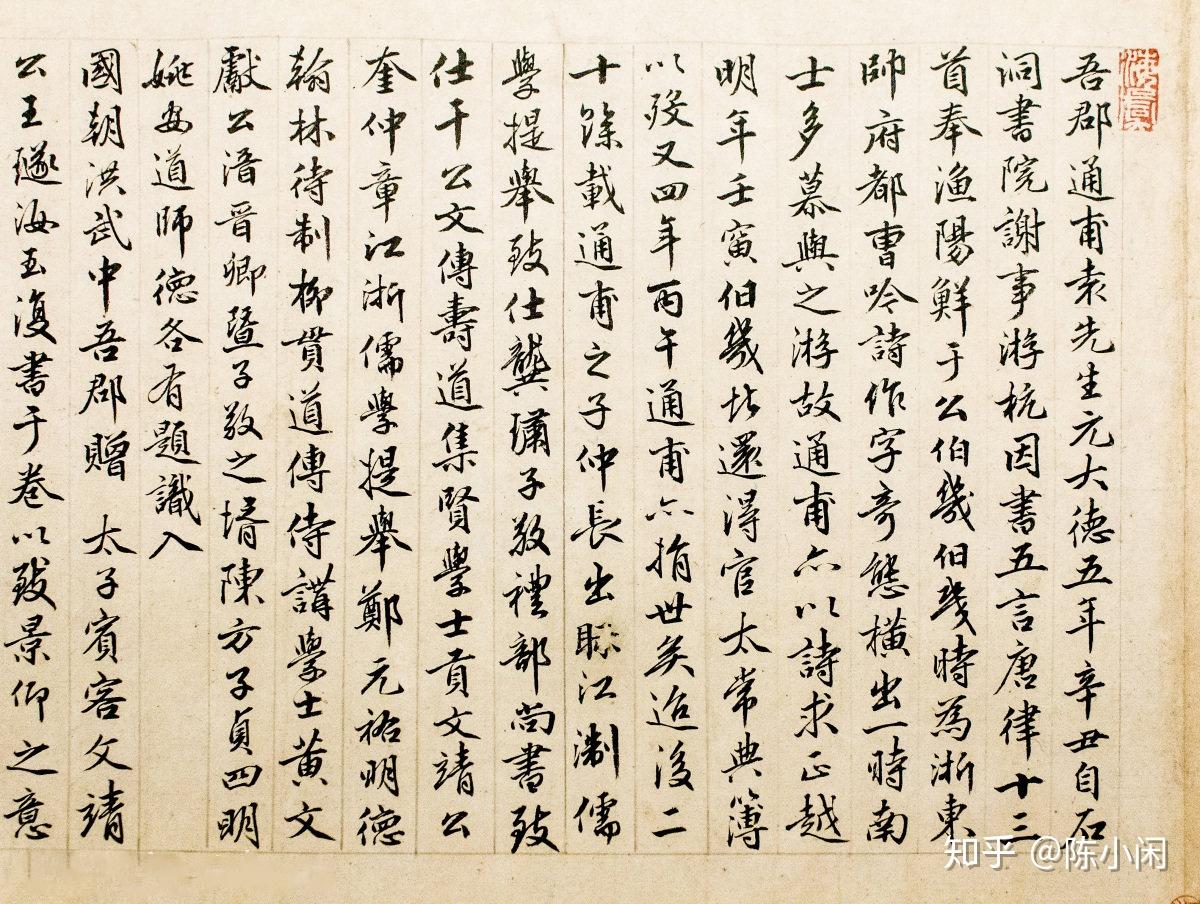 吾郡通甫袁先生元大德五年辛丑自石
洞書院謝事游杭因書五言唐律十三
首奉漁陽鮮于公伯幾伯幾時為浙東
帥府都曹吟詩作字奇態橫出一時南
士多慕與之游故通甫亦以詩求正越
明年壬寅伯幾北還得官太常典簿
以歿又四年丙午通甫亦捐世矣迨後二
十餘載通甫之子仲長出眎江淛儒
學提舉致仕龔璛子敬禮部尚書致
仕干公文傳壽道集賢學士貢文靖公
奎仲章江浙儒學提舉鄭元祐明德
翰林待制柳貫道傳侍講學士黃文
獻公溍晉卿暨子敬之壻陳方子貞四明
姚安道師德各有題識入
國朝洪武中吾郡贈 太子賓客文靖
公王璲汝玉復書于卷以致景仰之意
知乎 @陈小闲